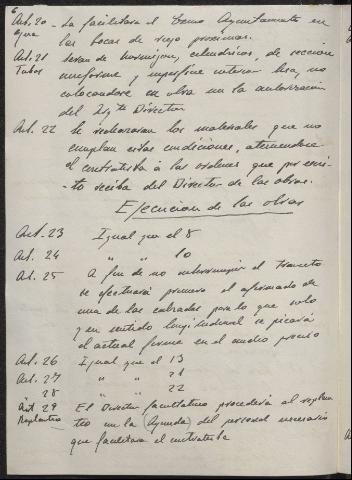 6
Art. 20 - La facilitara el Excmo Ayuntamiento en
Agua las bocas de riego proximas.
Art. 21 Seran de hormigon, cilindricos, de seccion
Tubos uniforme y superficie interior lisa, no
colocandose en obra sin la autorizacion
del Ing.te Director
Art. 22 Se rechazaran los materiales que no
cumplan estas condiciones, ateniendose
el contratista á las ordenes que por escri-
-to reciba del Director de las obras.
Ejecucion de las obras
Art. 23 Igual que el 8
Art. 24 " " 10
Art. 25 A fin de no interrumpir el transito
se efectuará primero el afirmado de
una de las calzadas para lo que solo
y en sentido longitudinal se picará
el actual firme en el ancho preciso
Art. 26 Igual que el 13
Art. 27 " " 21
" 28 " " 22
Art 29 El Director facultativo procederá al replan
Replanteo teo con la (Ayuda) del personal necesario
que facilitara el contratista